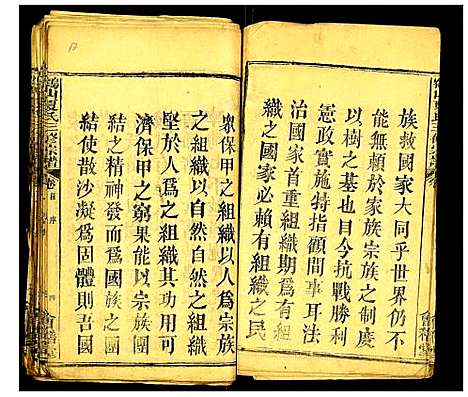 族救國家大同乎世界仍不
能無賴於家族宗族之制度
以樹之基也自今抗戰勝利
憲政實施特指顧間事耳法
治國家首重組織期爲有組
織之國家必賴有組織之民
眾保甲之組織以人爲宗族
之組織以自然自然之組織
堅於人爲之組織其功可想
濟保甲之窮果能以宗族團
結之精神發而爲國族之團
結使散沙凝爲固體則吾國
山夏氏三修宗譜
卷首 序
四
會稽堂